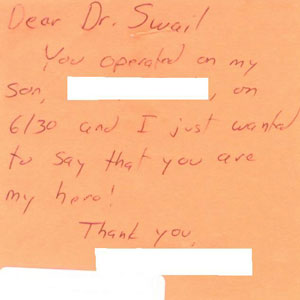 Dear Dr. Swail
You operated on my
son, , on
6/30 and I just wanted
to say that you are
my hero!
Thank you,